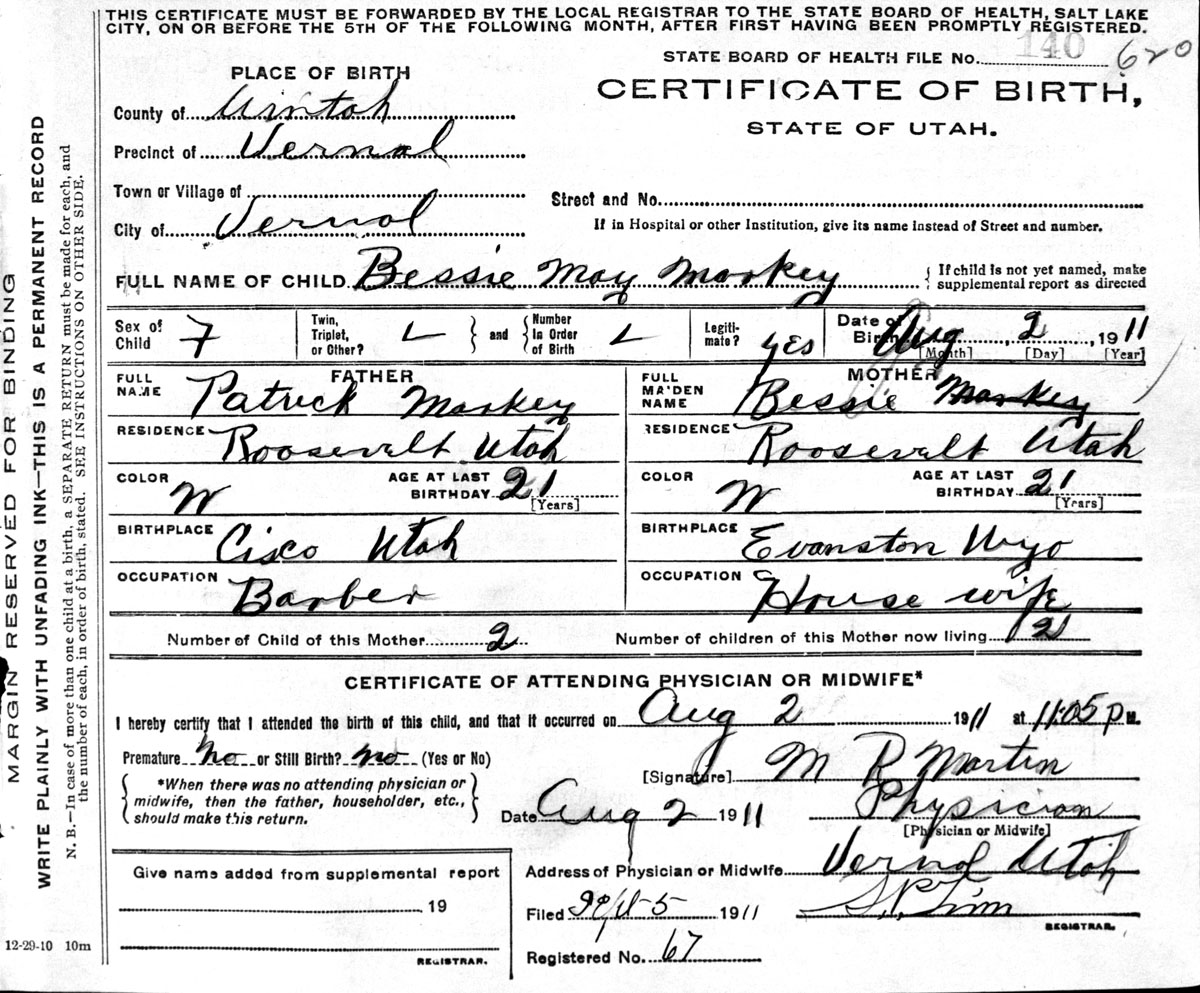 THIS CERTIFICATE MUST BE FORWARDED BY THE LOCAL REGISTRAR TO THE STATE BOARD OF HEALTH, SALT LAKE
CITY, ON OR BEFORE THE 5TH OF THE FOLLOWING MONTH, AFTER FIRST HAVING BEEN PROMPTLY REGISTERED.
STATE BOARD OF HEALTH FILE No. 140 620
PLACE OF BIRTH
CERTIFICATE OF BIRTH,
STATE OF UTAH.
County of Uintah
Precinct of Vernal
Town or Village of
Street and No.
City of Vernal
If in Hospital or other Institution, give its name instead of Street and number.
FULL NAME OF CHILD Bessie May Markey
If child is not yet named, make
supplemental report as directed
Sex of
Child F
Twin,
Triplet,
or Other?
and
Number
in Order
of Birth
Legiti-
mate? yes
Date of
Birth Aug 2, 1911
[Month] [Day] [Year]
FATHER
FULL
NAME Patrick Markey
RESIDENCE Roosevelt Utah
COLOR W
AGE AT LAST
BIRTHDAY 21
[Years]
BIRTHPLACE Cisco Utah
OCCUPATION Barber
MOTHER
FULL
MAIDEN
NAME Bessie Markey
RESIDENCE Roosevelt Utah
COLOR W
AGE AT LAST
BIRTHDAY 21
[Years]
BIRTHPLACE Evanston Wyo
OCCUPATION House wife
Number of Child of this Mother 2
Number of children of this Mother now living 2
CERTIFICATE OF ATTENDING PHYSICIAN OR MIDWIFE*
I hereby certify that I attended the birth of this child, and that it occurred on Aug 2 1911 at 11:05 P M.
Premature No or Still Birth? no (Yes or No)
*When there was no attending physician or
midwife, then the father, householder, etc.,
should make this return.
[Signature] M R Martin
Date Aug 2 1911
Physician
[Physician or Midwife]
Address of Physician or Midwife Vernal Utah
Filed 5 1911
REGISTRAR.
Registered No. 67
Give name added from supplemental report
19
REGISTRAR.
12-29-10 10m
MARGIN RESERVED FOR BINDING
WRITE PLAINLY WITH UNFADING INK—THIS IS A PERMANENT RECORD
N. B.—In case of more than one child at a birth, a SEPARATE RETURN must be made for each, and
the number of each, in order of birth, stated. SEE INSTRUCTIONS ON OTHER SIDE.